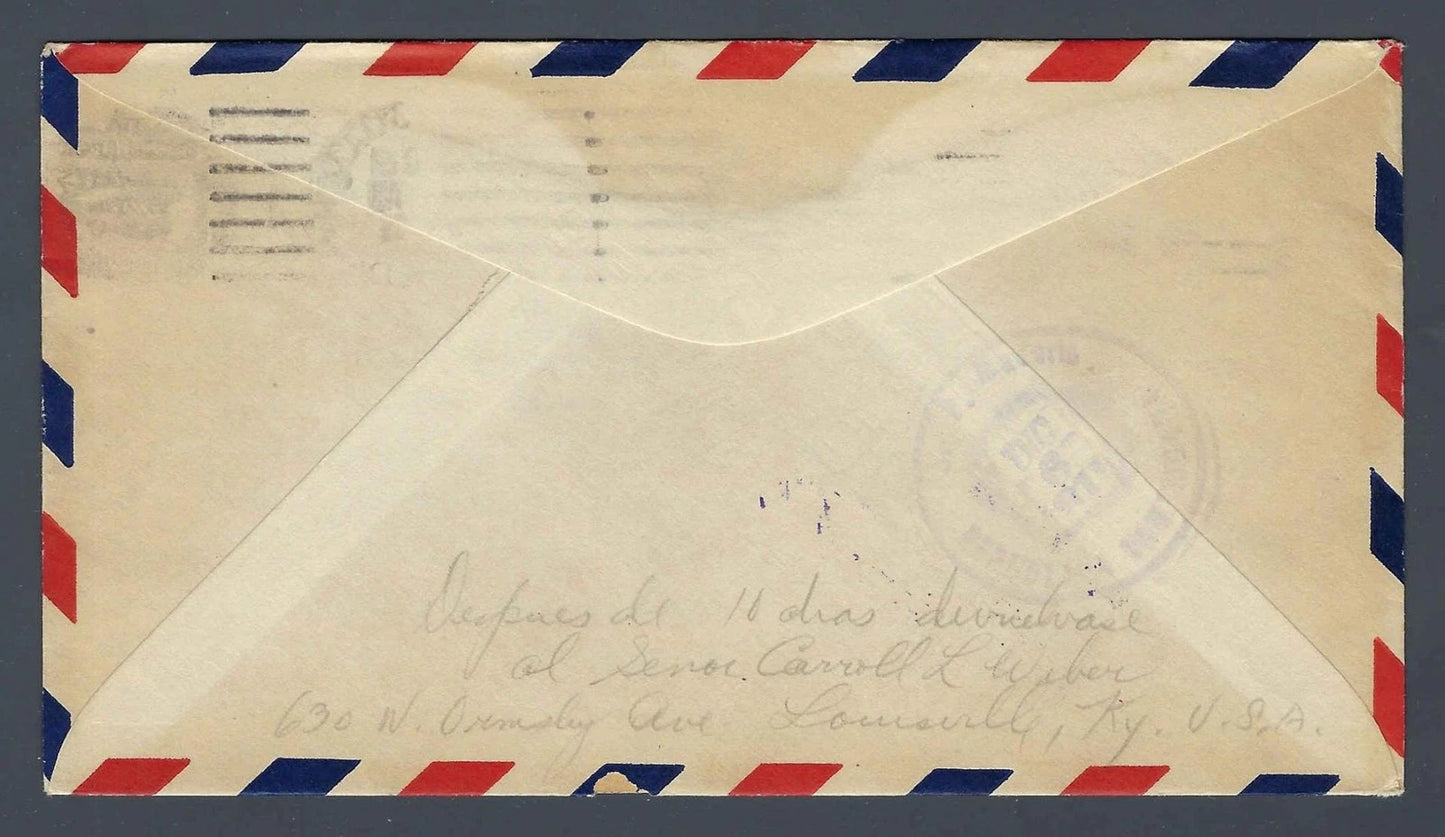 Despues de 10 dias devuelvase
al Senor Carroll L Weber
630 W. Ormsby Ave Louisville, Ky. U.S.A.